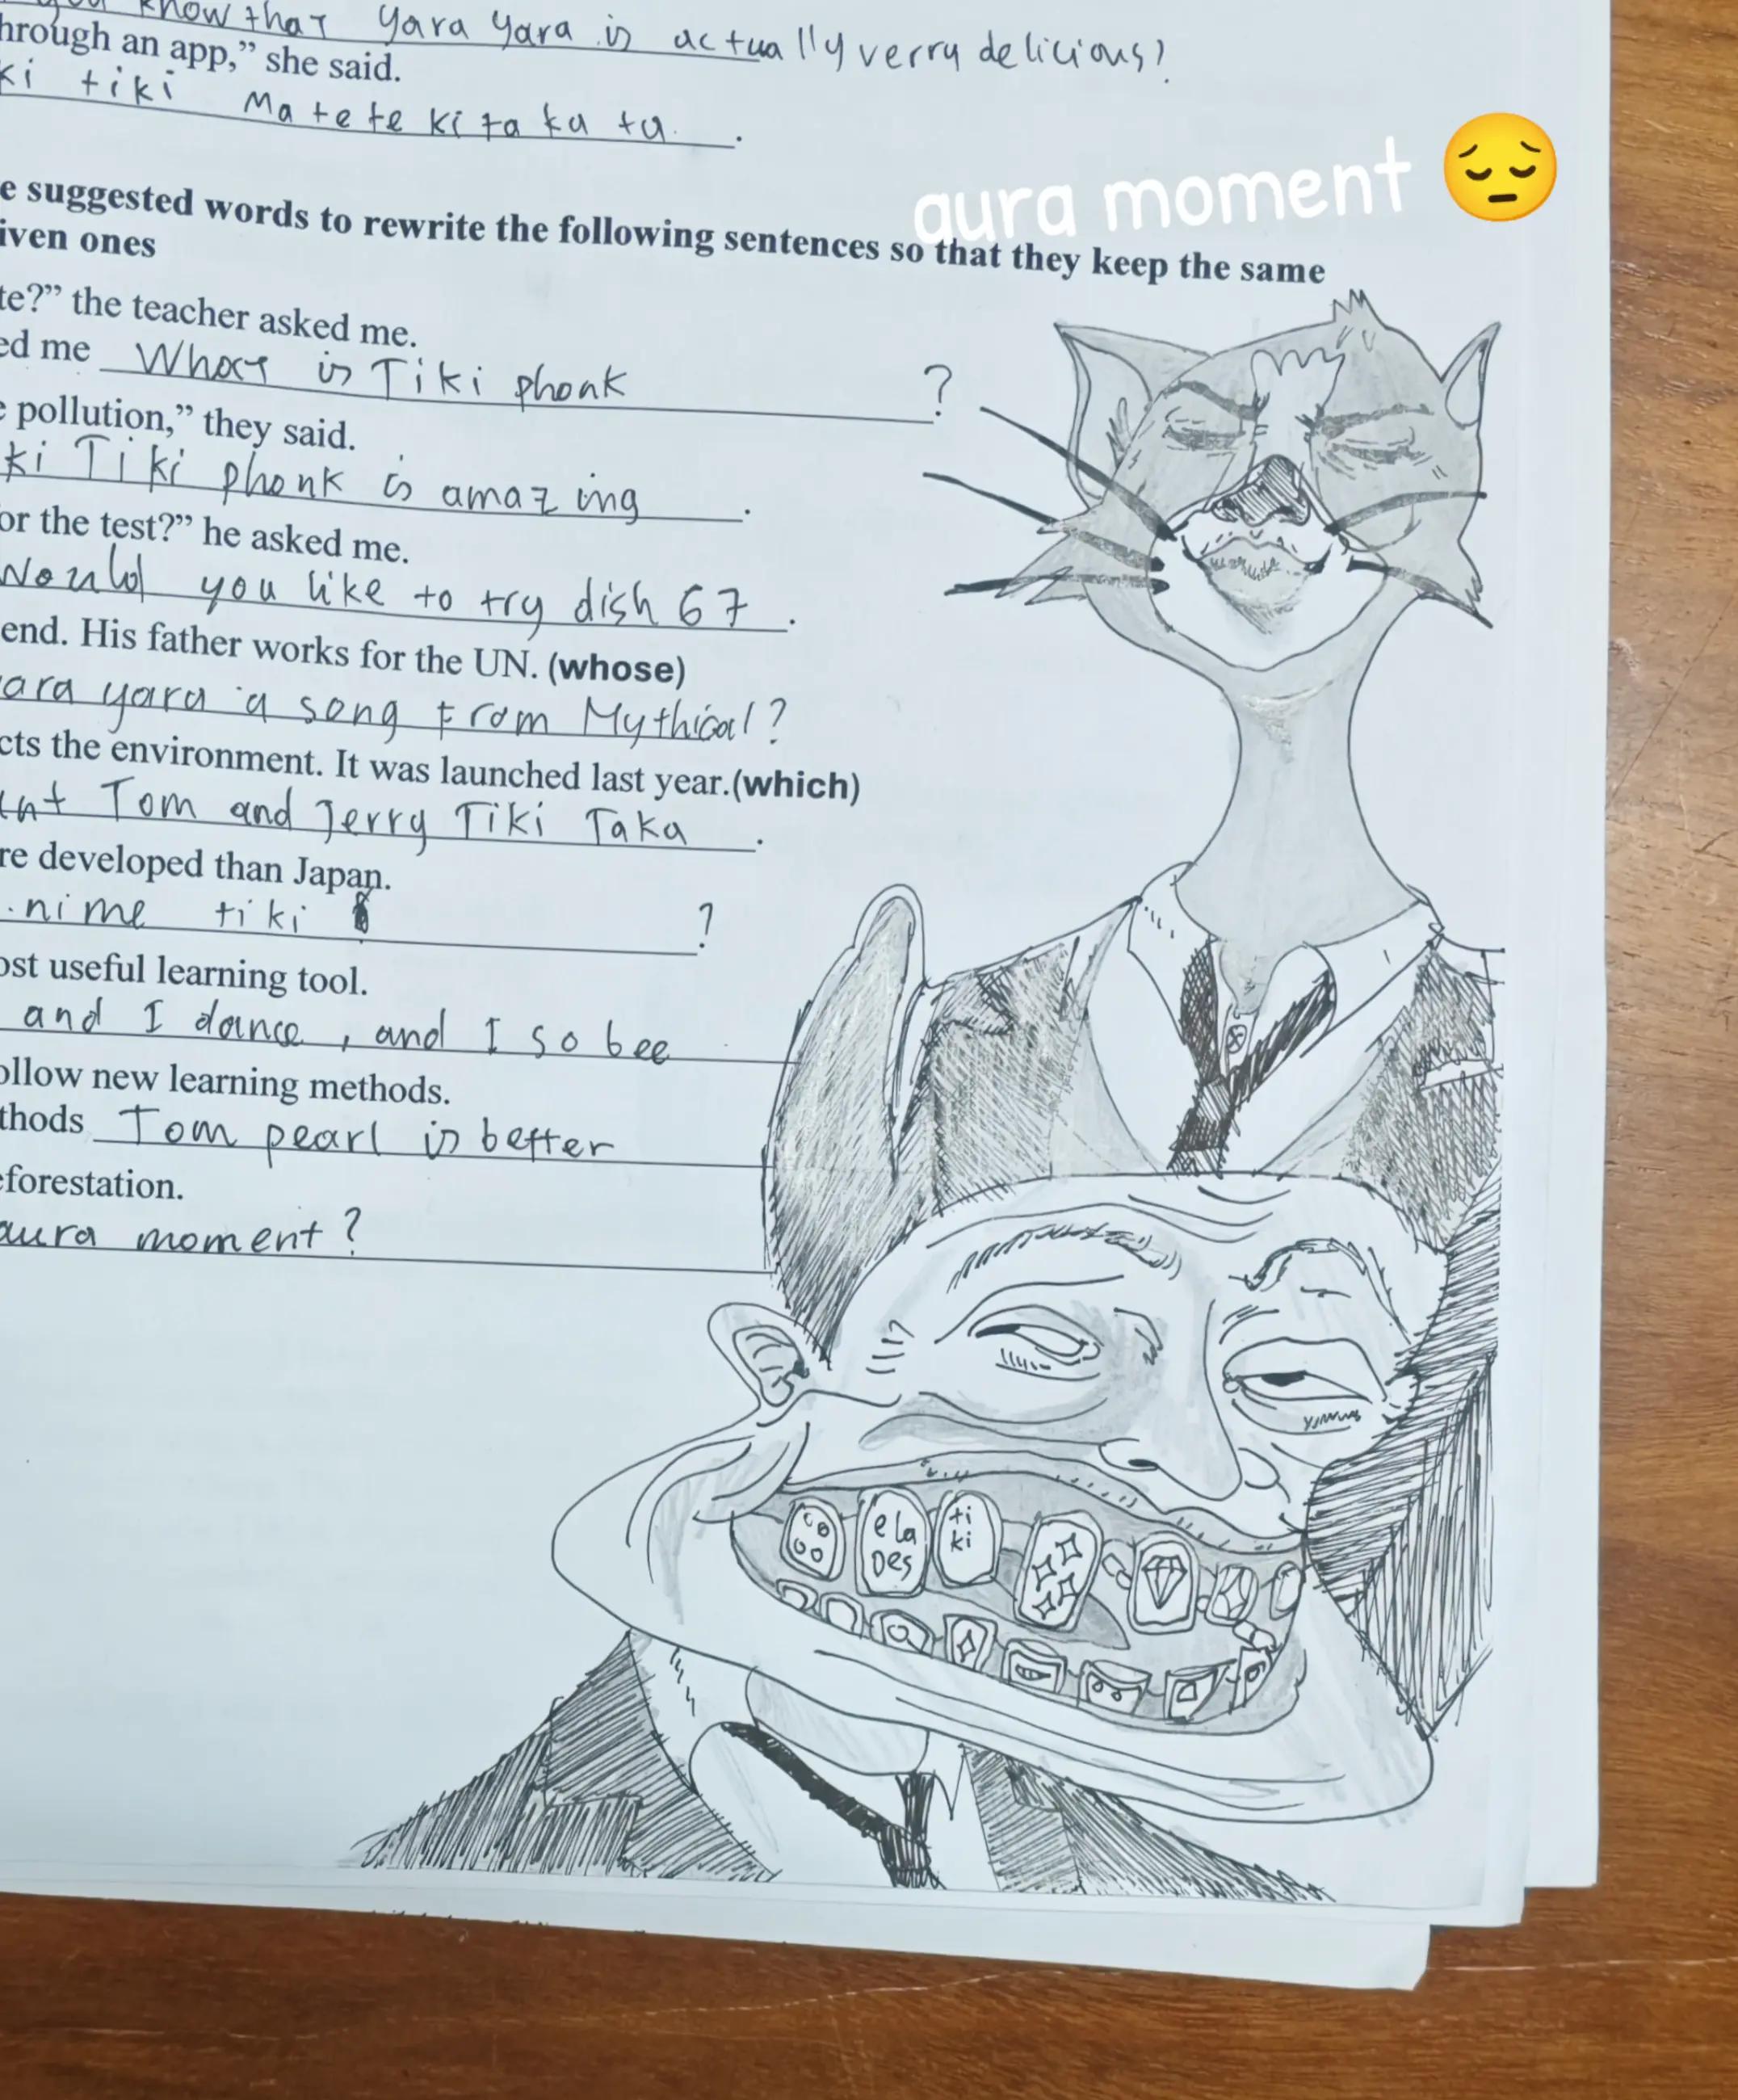 know that yara yara is actually verry delicious?
hrough an app,” she said.
ki tiki Ma te te ki ta ka ta.
aura moment 😔
e suggested words to rewrite the following sentences so that they keep the same
iven ones
te?” the teacher asked me.
ed me What is Tiki phonk ?
e pollution,” they said.
ki Tiki phonk is amazing.
or the test?” he asked me.
Would you like to try dish 67.
end. His father works for the UN. (whose)
ara yara a song from Mythical?
cts the environment. It was launched last year.(which)
nt Tom and Jerry Tiki Taka.
re developed than Japan.
nime tiki ?
ost useful learning tool.
and I dance, and I so bee
ollow new learning methods.
thods Tom pearl is better
eforestation.
aura moment?
ela
Des
ti
ki